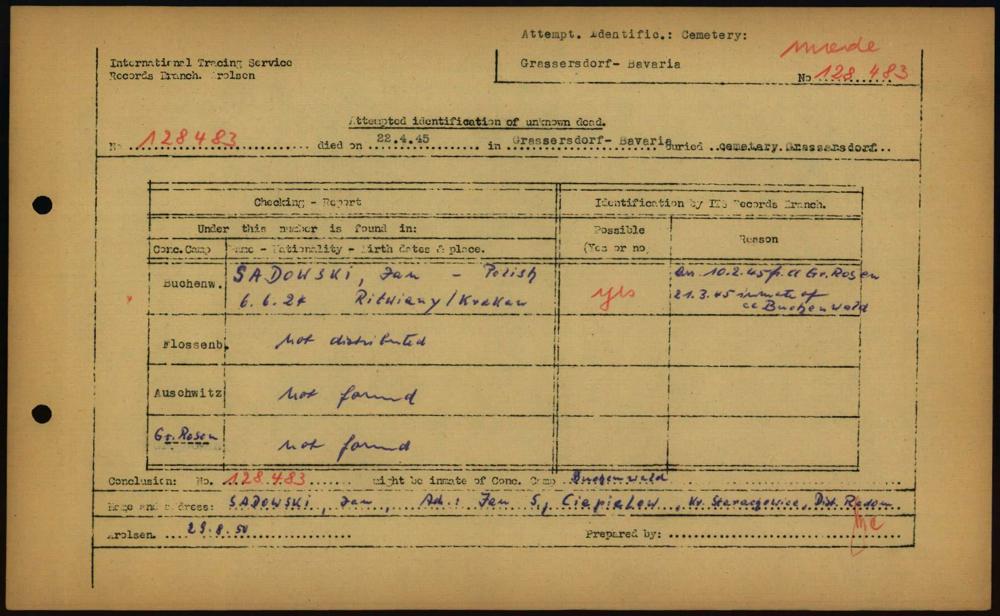 Attempt. Identific.: Cemetery:
International Tracing Service
Grassersdorf- Bavaria
Records Branch. Arolsen
No 128 483
Attempted identification of unknown dead.
No 128483 died on 22.4.45 in Grassersdorf- Bavaria buried cemetary Grassersdorf
Checking - Report
Identification by ITS Records Branch.
Under this number is found in:
Possible
(Yes or no)
Reason
Conc.Camp
Name - Nationality - Birth dates & place.
Buchenw.
SADOWSKI, Jan - Polish
6.6.24 Ritwiany/Krakau
yes
an 10.2.45 f. cc Gr. Rosen
21.3.45 inmate of
cc Buchenwald
Flossenb.
not distributed
Auschwitz
not found
Gr. Rosen
not found
Conclusion: No. 128.483 might be inmate of Conc. Camp Buchenwald
Name and adress: SADOWSKI, Jan, Ad.: Jan S., Ciepielow, Kr. Starachowice, Distr. Radom
Arolsen. 29.8.50 Prepared by: